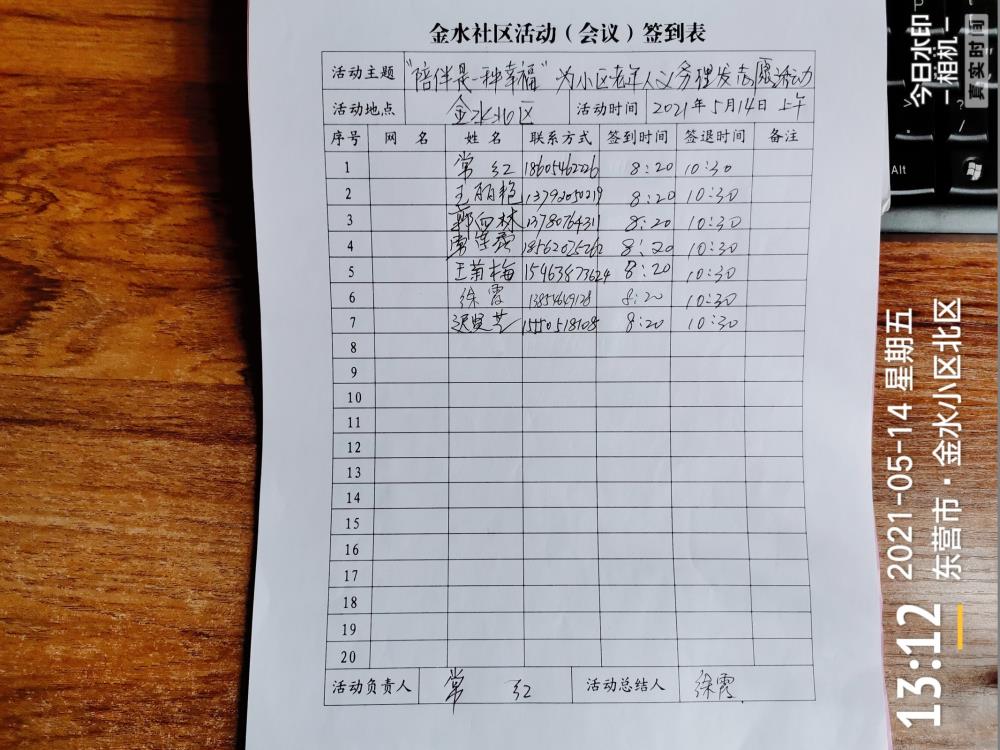 金水社区活动（会议）签到表
活动主题 “陪伴是一种幸福”为小区老年人义务理发志愿活动
活动地点 金水北区 活动时间 2021年5月14日 上午
序号 网 名 姓 名 联系方式 签到时间 签退时间 备注
1 常 红 18605462226 8:20 10:30
2 王丽艳 13792050219 8:20 10:30
3 8:20 10:30
4 18562025262 8:20 10:30
5 王菊梅 15963873624 8:20 10:30
6 徐霞 8:20 10:30
7 迟爱芝 15550518108 8:20 10:30
8
9
10
11
12
13
14
15
16
17
18
19
20
活动负责人 常 红 活动总结人 徐霞
今日水印
-相机-
真实时间
13:12
2021-05-14 星期五
东营市·金水小区北区
Alt